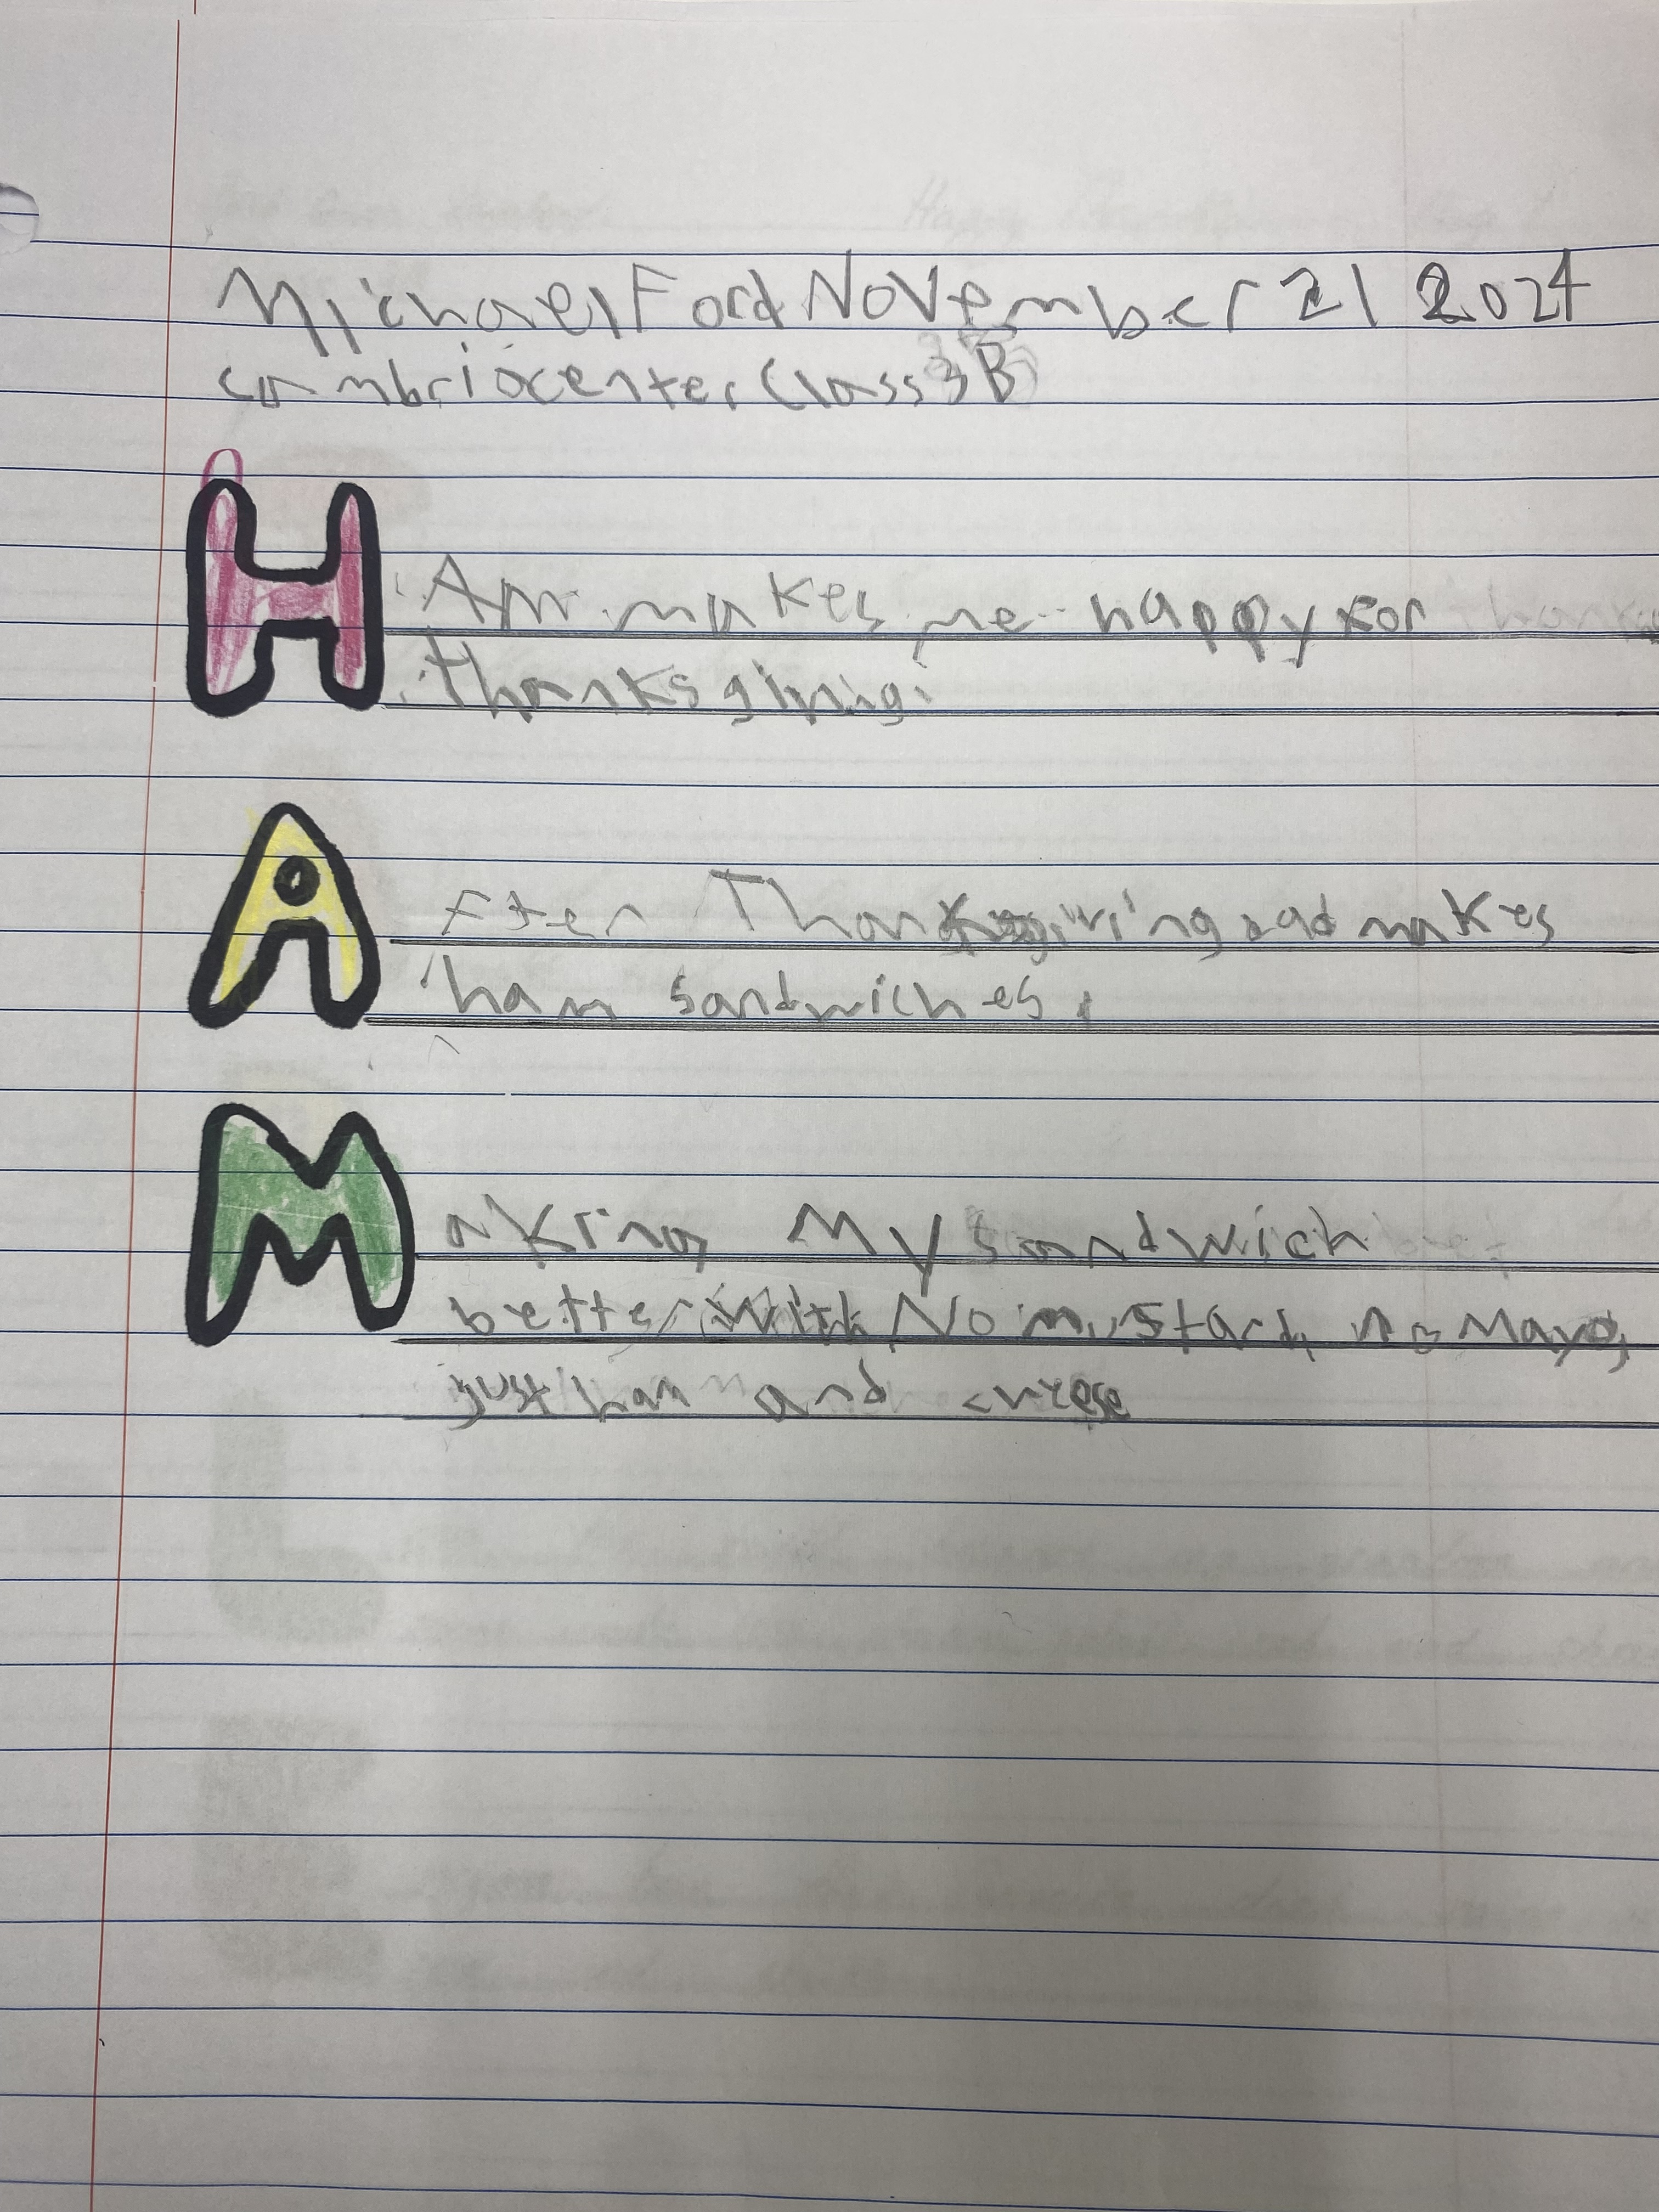 Michael Ford November 21 2024
cambriacenter Class 3B
HAm makes me happy for
thanksgiving.
AFter Thanksgiving dad makes
ham sandwiches.
Making My sandwich
better with No mustard, no Mayo,
just ham and cheese